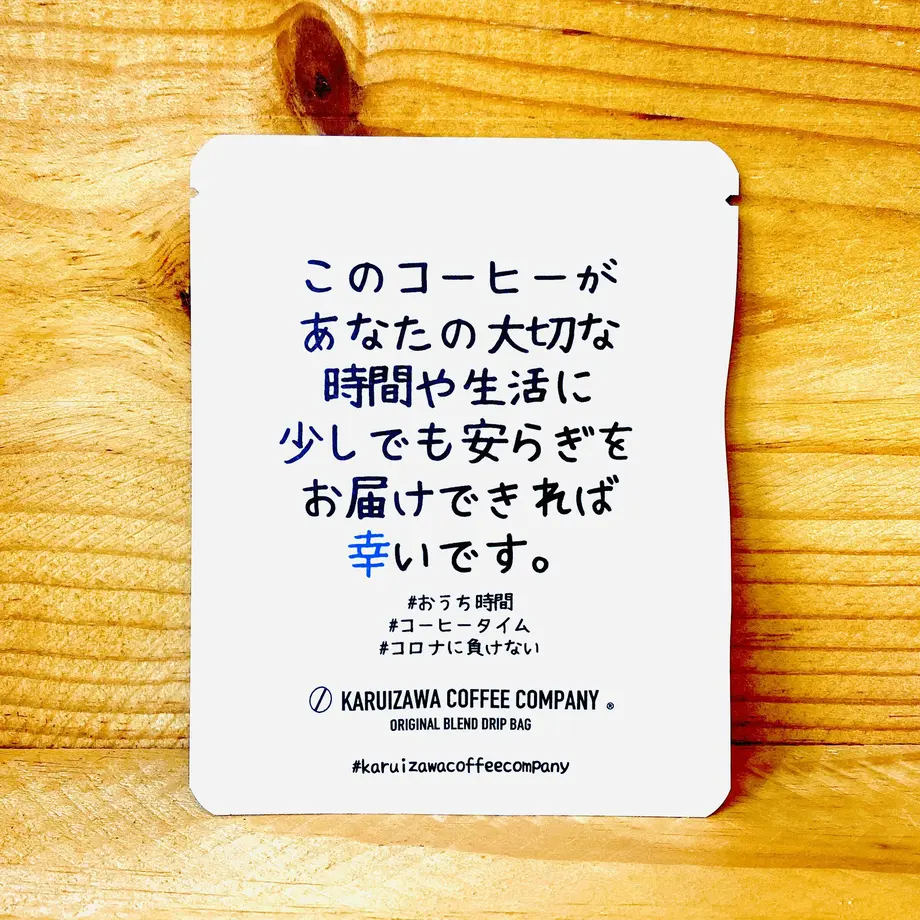 このコーヒーが
あなたの大切な
時間や生活に
少しでも安らぎを
お届けできれば
幸いです。
#おうち時間
#コーヒータイム
#コロナに負けない
KARUIZAWA COFFEE COMPANY ®
ORIGINAL BLEND DRIP BAG
#karuizawacoffeecompany